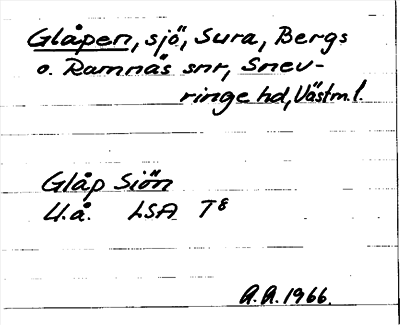 Glåpen, sjö, Sura, Bergs
o. Ramnäs snr, Snev-
ringe hd, Västm.l.
Glåp Siön
U.å. LSA T8
A.A. 1966.